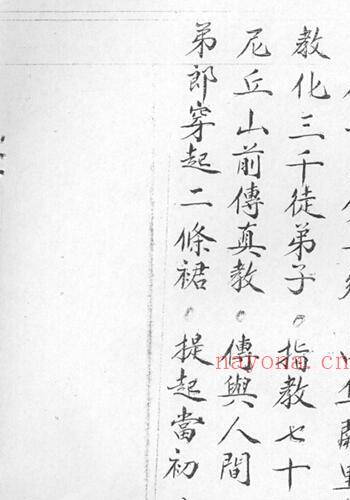 教化三千徒弟子。指教七十
尼丘山前傳真教。傳與人間
弟郎穿起二條裙。提起當初
nayona.cn